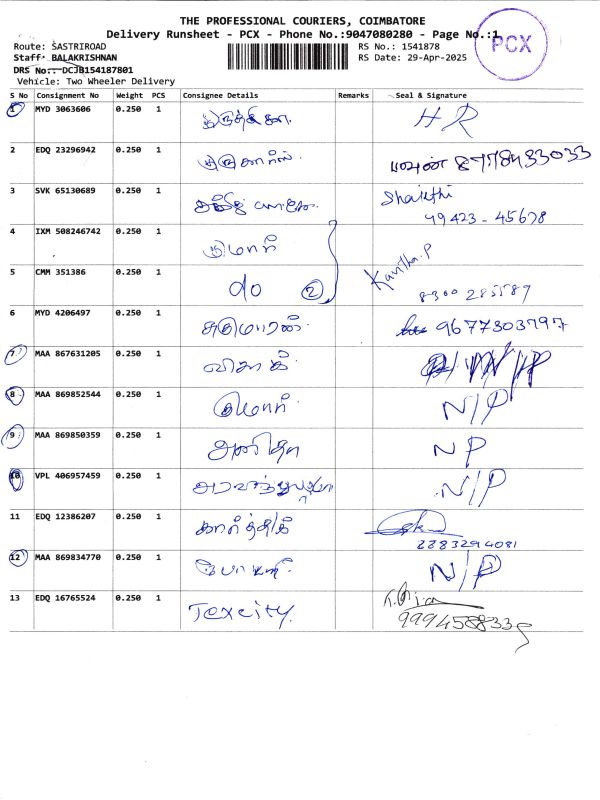 THE PROFESSIONAL COURIERS, COIMBATORE
Delivery Runsheet - PCX - Phone No.:9047080280 - Page No.:1
Route: SASTRIROAD
RS No.: 1541878
Staff: BALAKRISHNAN
RS Date: 29-Apr-2025
DRS No.: DCJB154187801
Vehicle: Two Wheeler Delivery
PCX
S No Consignment No Weight PCS Consignee Details Remarks Seal & Signature
1 MYD 3063606 0.250 1 H R
2 EDQ 23296942 0.250 1
3 SVK 65130689 0.250 1 Shakthi
49423-45678
4 IXM 508246742 0.250 1 குமார்
5 CMM 351386 0.250 1 do 2 Kavitha.P
8300285587
6 MYD 4206497 0.250 1 9677303797
7 MAA 867631205 0.250 1 விசாக்
8 MAA 869852544 0.250 1 N/P
9 MAA 869850359 0.250 1 அனிதா NP
10 VPL 406957459 0.250 1 N/P
11 EDQ 12386207 0.250 1 கார்த்திக்
2283294081
12 MAA 869834770 0.250 1 N/P
13 EDQ 16765524 0.250 1 Texcity.